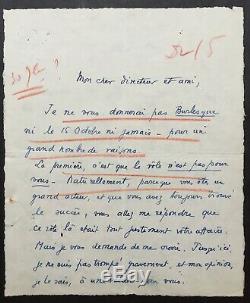 32/5
Mon cher directeur et ami,
Je ne vous donnerai pas Burlesque
ni le 15 Octobre ni jamais - pour un
grand nombre de raisons.
La première, c'est que le rôle n'est pas pour
vous - Naturellement, parce que vous êtes un
grand acteur, et que vous avez toujours trouvé
le succès, vous allez me répondre que
ce rôle là était tout justement votre affaire.
Mais je vous demande de me croire. Jusqu'ici,
je ne suis pas trompé gravement, et mon opinion,
je le sais, à vous